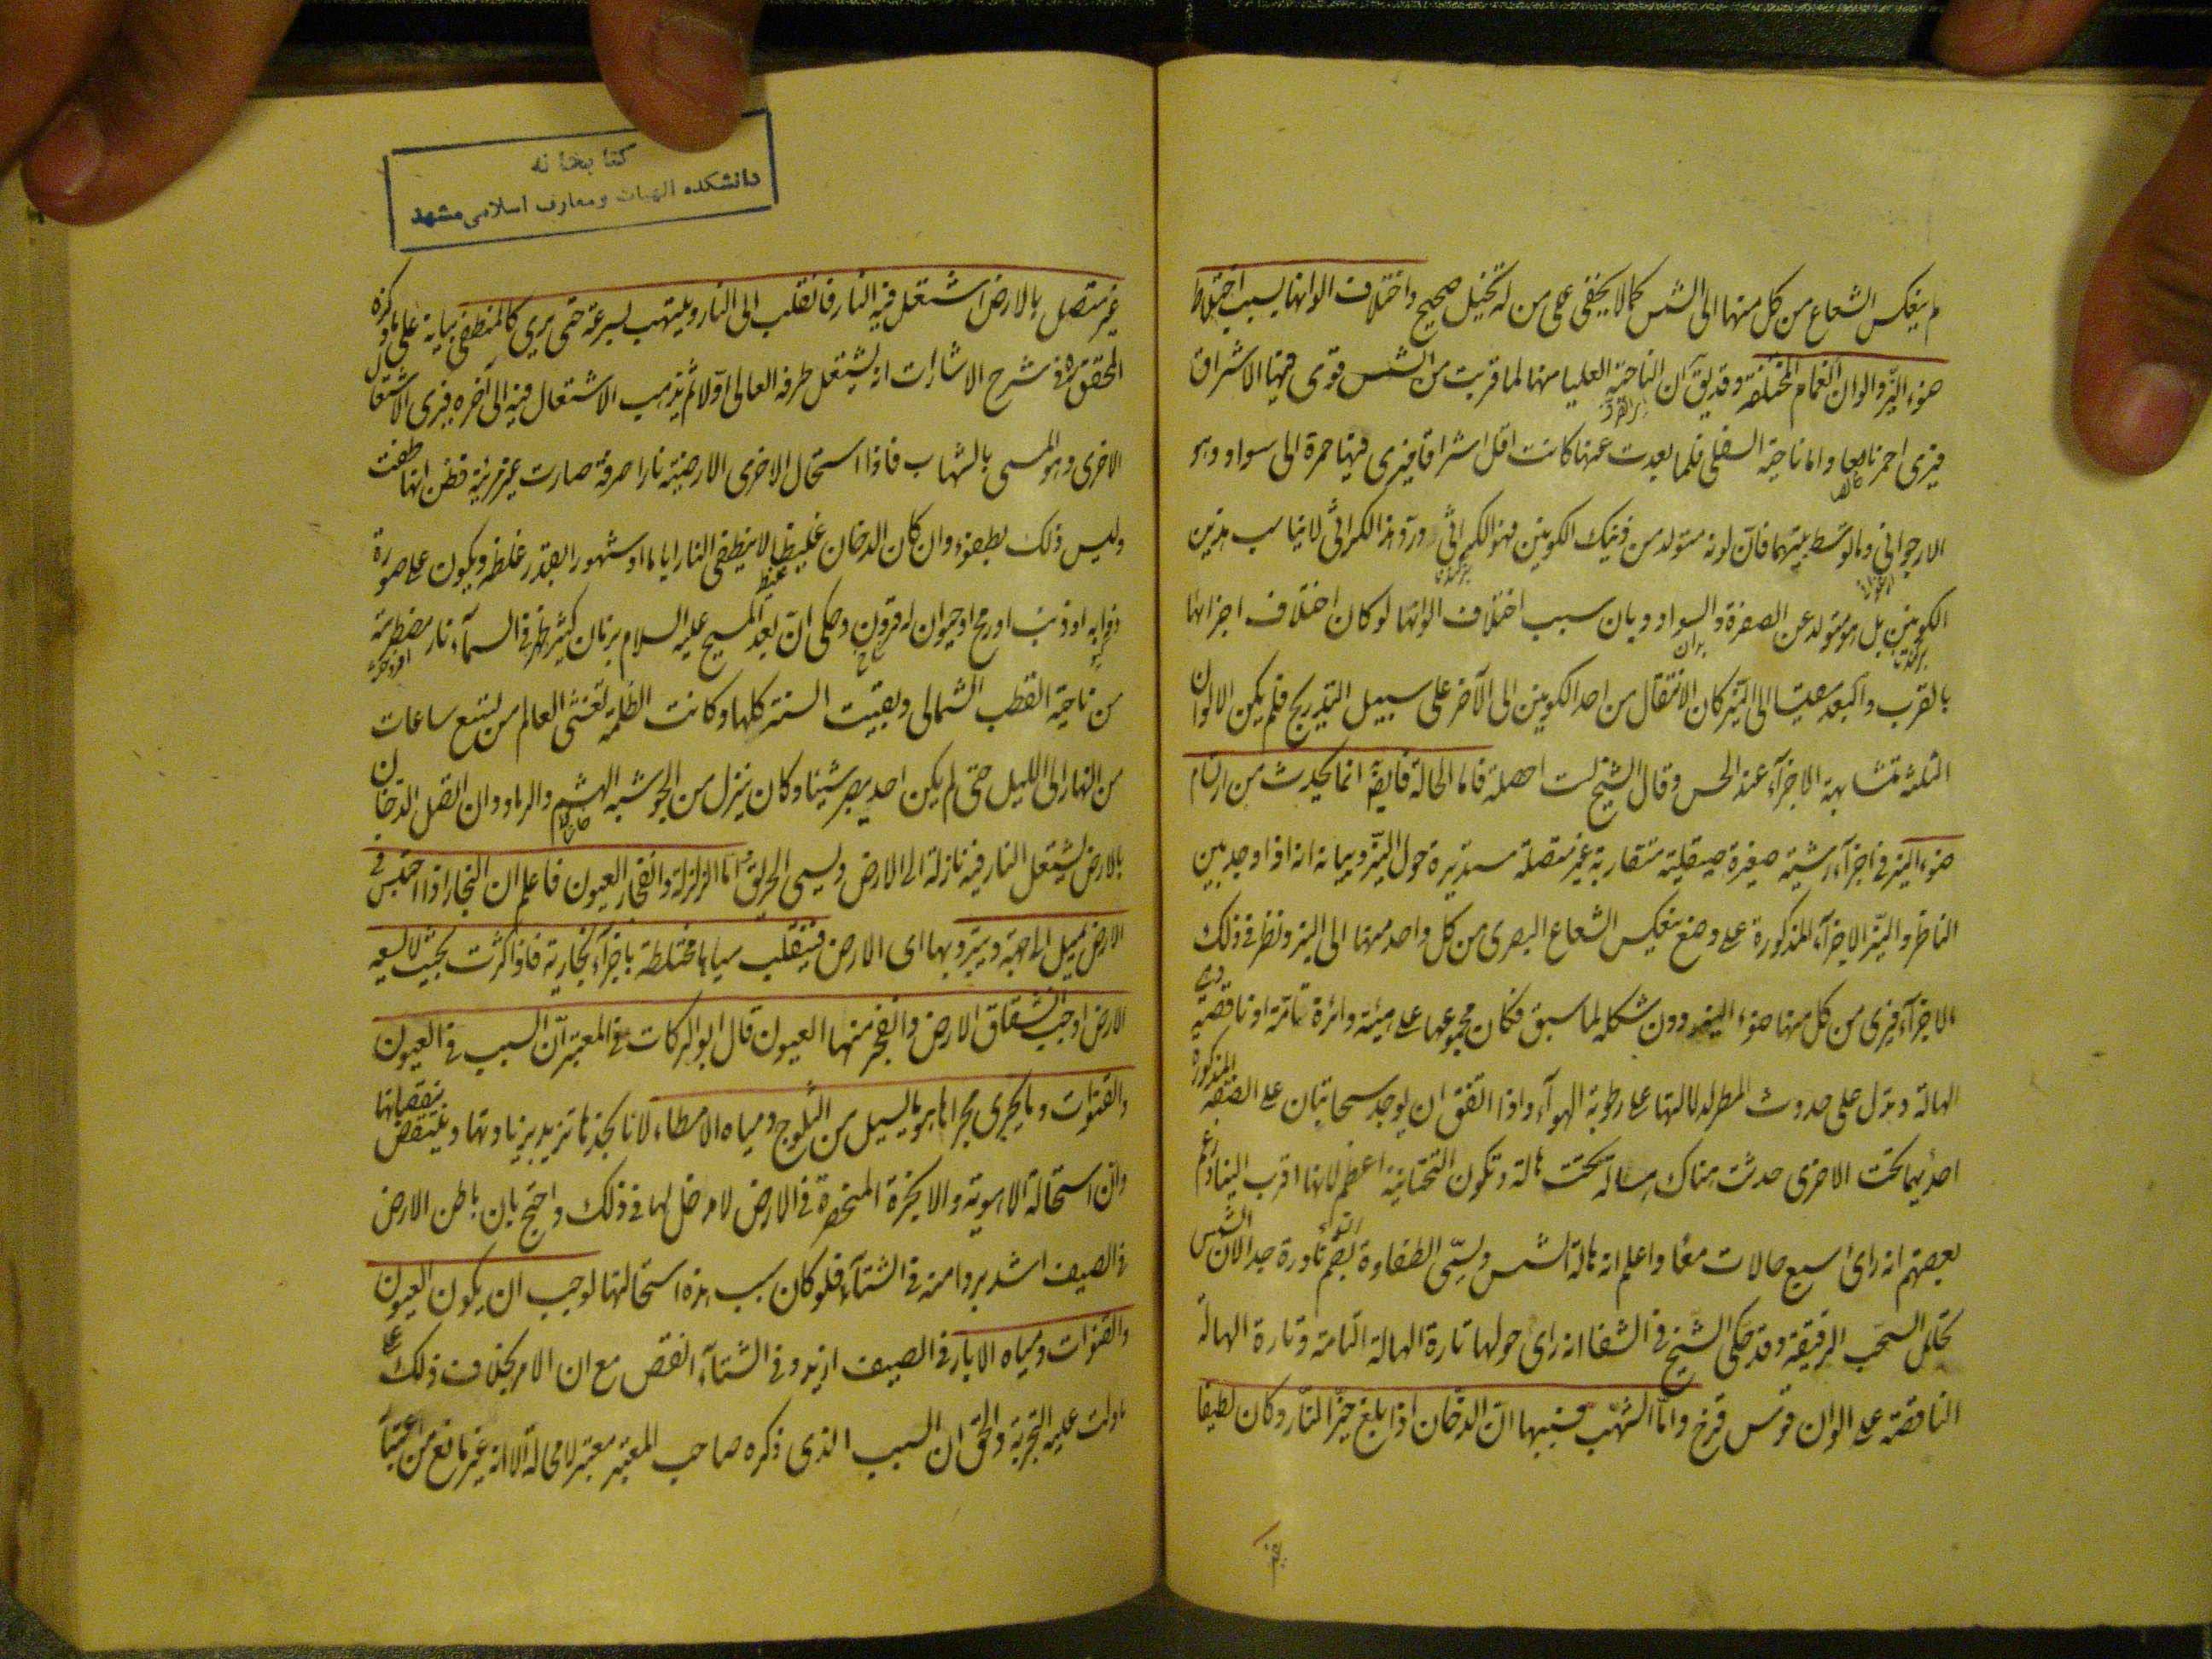 لم ينعكس الشعاع من كل منها الى الشمس كما لا يخفى على من له تخيل صحيح واختلاف الوانها بسبب اختلاط
ضوء النير والوان الغمام المختلفة وقد يق ان الناحية العليا منها لما قربت من الشمس قوى فيها الاشراق
فيرى احمر ناصعا واما ناحية السفلى فلما بعدت عنها كانت اقل اشراقا فيرى فيها حمرة الى سواد وهو
الارجواني واما المتوسط بينهما فان لونه متولد من ذينك اللونين فهو الكراثى ورد وهذا الكراثى لا يناسب هذين
اللونين بل هو متولد عن الصفرة والسواد وبان سبب اختلاف الوانها لو كان اختلاف اجزائها
بالقرب والبعد بالنسبة الى النير كان الانتقال من احد اللونين الى الآخر على سبيل التدريج فلم يكن الالوان
الثلثة متشابهة الاجزآء عند الحس وقال الشيخ لست احصله فاما الهالة فايضا انما يحدث من ارتسام
ضوء النير في اجزآء رشية صغيرة صيقلية متقاربة غير متصلة مستديرة حول النير وبيانه انه اذا وجد بين
الناظر والنير الاجزآء المذكورة على وضع ينعكس الشعاع البصرى من كل واحد منها الى النير ونظر في ذلك
الاجزآء فيرى من كل منها ضوء النير دون شكله لما سبق فكان مجموعها على هيئة دائرة تامة او ناقصة وهى
الهالة وتدل على حدوث المطر لدلالتها على رطوبة الهوآء واذا اتفق ان يوجد سحابتان على الصفة المذكورة
احدیهما تحت الاخرى حدثت هناك هالة تحت هالة وتكون التحتانية اعظم لانها اقرب الينا وزعم
بعضهم انه رأى سبع هالات معا واعلم انه هالة الشمس وتسمى الطفاوة بضم الطاء نادرة جدا لان الشمس
تحلل السحب الرقيقة وقد حكى الشيخ في الشفا انه رأى حولها تارة الهالة التامة وتارة الهالة
الناقصة على الوان قوس قزح واما الشهب فسببها ان الدخان اذا بلغ حيز النار وكان لطيفا
كتابخانه
دانشكده الهيات و معارف اسلامى مشهد
غير متصل بالارض اشتعل فيه النار فانقلب الى النار ويلتهب بسرعة حتى يرى كالمنطفى بيانه على ما ذكره
المحقق في شرح الاشارات انه يشتعل طرفه العالى اولا ثم يذهب الاشتعال فيه الى آخره فيرى الاشتعال
الاخرى وهو المسمى بالشهاب فاذا استحال الاخرى الارضية نارا صرفة صارت غير مرئية فظن انها طفئت
وليس ذلك بطفوء وان كان الدخان غليظا لا ينطفى النار اياما او شهورا بقدر غلظه ويكون على صورة
ذوابة او ذنب او رمح او حيوان له قرون وحكى ان بعد المسيح عليه السلام بزمان كثير ظهر في السمآء نار مضطرمة
من ناحية القطب الشمالى وبقيت السنة كلها وكانت الظلمة تغشى العالم من تسع ساعات
من النهار الى الليل حتى لم يكن احد يبصر شيئا وكان ينزل من الجو شبه الهشيم والرماد وان اتصل الدخان
بالارض يشتعل النار فيه نازلة الى الارض ويسمى الحريق واما الزلزلة وانفجار العيون فاعلم ان البخار اذا احتبس في
الارض يميل الى جهة ويتبرد بها اى الارض فينقلب مياها مختلطة باجزآء بخارية فاذا كثرت بحيث لا يسعه
الارض اوجب انشقاق الارض وانفجر منها العيون قال ابو البركات في المعتبر ان السبب في العيون
والقنوات وما يجرى مجراها هو ما يسيل من الثلوج ومياه الامطار لانا نجدها تزيد بزيادتها وينتقص بنقصانها
وان استحالة الاهوية والابخرة المنحصرة في الارض لا مدخل لها في ذلك واحتج بان باطن الارض
في الصيف اشد بردا منه في الشتآء فلو كان سبب هذه استحالتها لوجب ان يكون العيون
والقنوات ومياه الابار في الصيف ازيد وفي الشتآء انقص مع ان الامر بخلاف ذلك على
ما دلت عليه التجربة والحق ان السبب الذى ذكره صاحب المعتبر معتبر لا محالة الا انه غير مانع من اعتبار